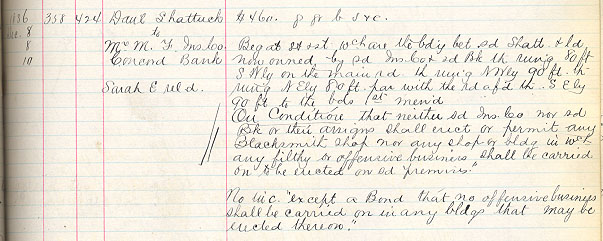 136 358 424 Danl Shattuck $460. g gr b s & c.
Dec. 8 to
8 Mx M. F. Ins. Co. Beg at st & st. wch are the bdy bet. sd Shatt. & ld
10 Concord Bank now owned by sd Ins. Co & sd Bk th run'g 80 ft
S Wly on the main rd. th run'g N Wly 90 ft. th
Sarah E. reld. run'g N Ely 80 ft. par with the rd afsd th. S Ely
90 ft to the bds 1st men'd
On Condition that neither sd Ins. Co nor sd
Bk or their assigns shall erect or permit any
Blacksmith shop nor any shop or bldg in wch
any filthy or offensive business shall be carried
on to be erected on sd "premises."
No inc. "except a Bond that no offensive business
shall be carried on in any bldgs that may be
erected thereon."